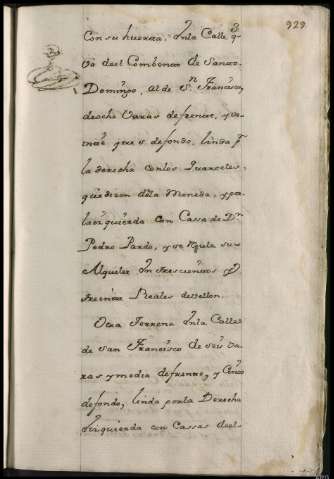 929
Con su huerta. Inla Calle q.e
và del Combento de Santo
Domingo, al de S.n Francisco,
de ocho Varas de frente, y ve
inte y de fondo, linda p.r
la derecha con los Quarteles,
que dicen de la Moneda, y p.r
la izquierda con Casa de D.n
Pedro Pardo, y se regula su
Alquiler Intrescientos y
treinta Reales devellon.
Otra Terrena Inla Calle
de San Francisco de seis va
ras y media de frente, y Cinco
defondo, linda porla Derecha
Izquierda con Cassas del